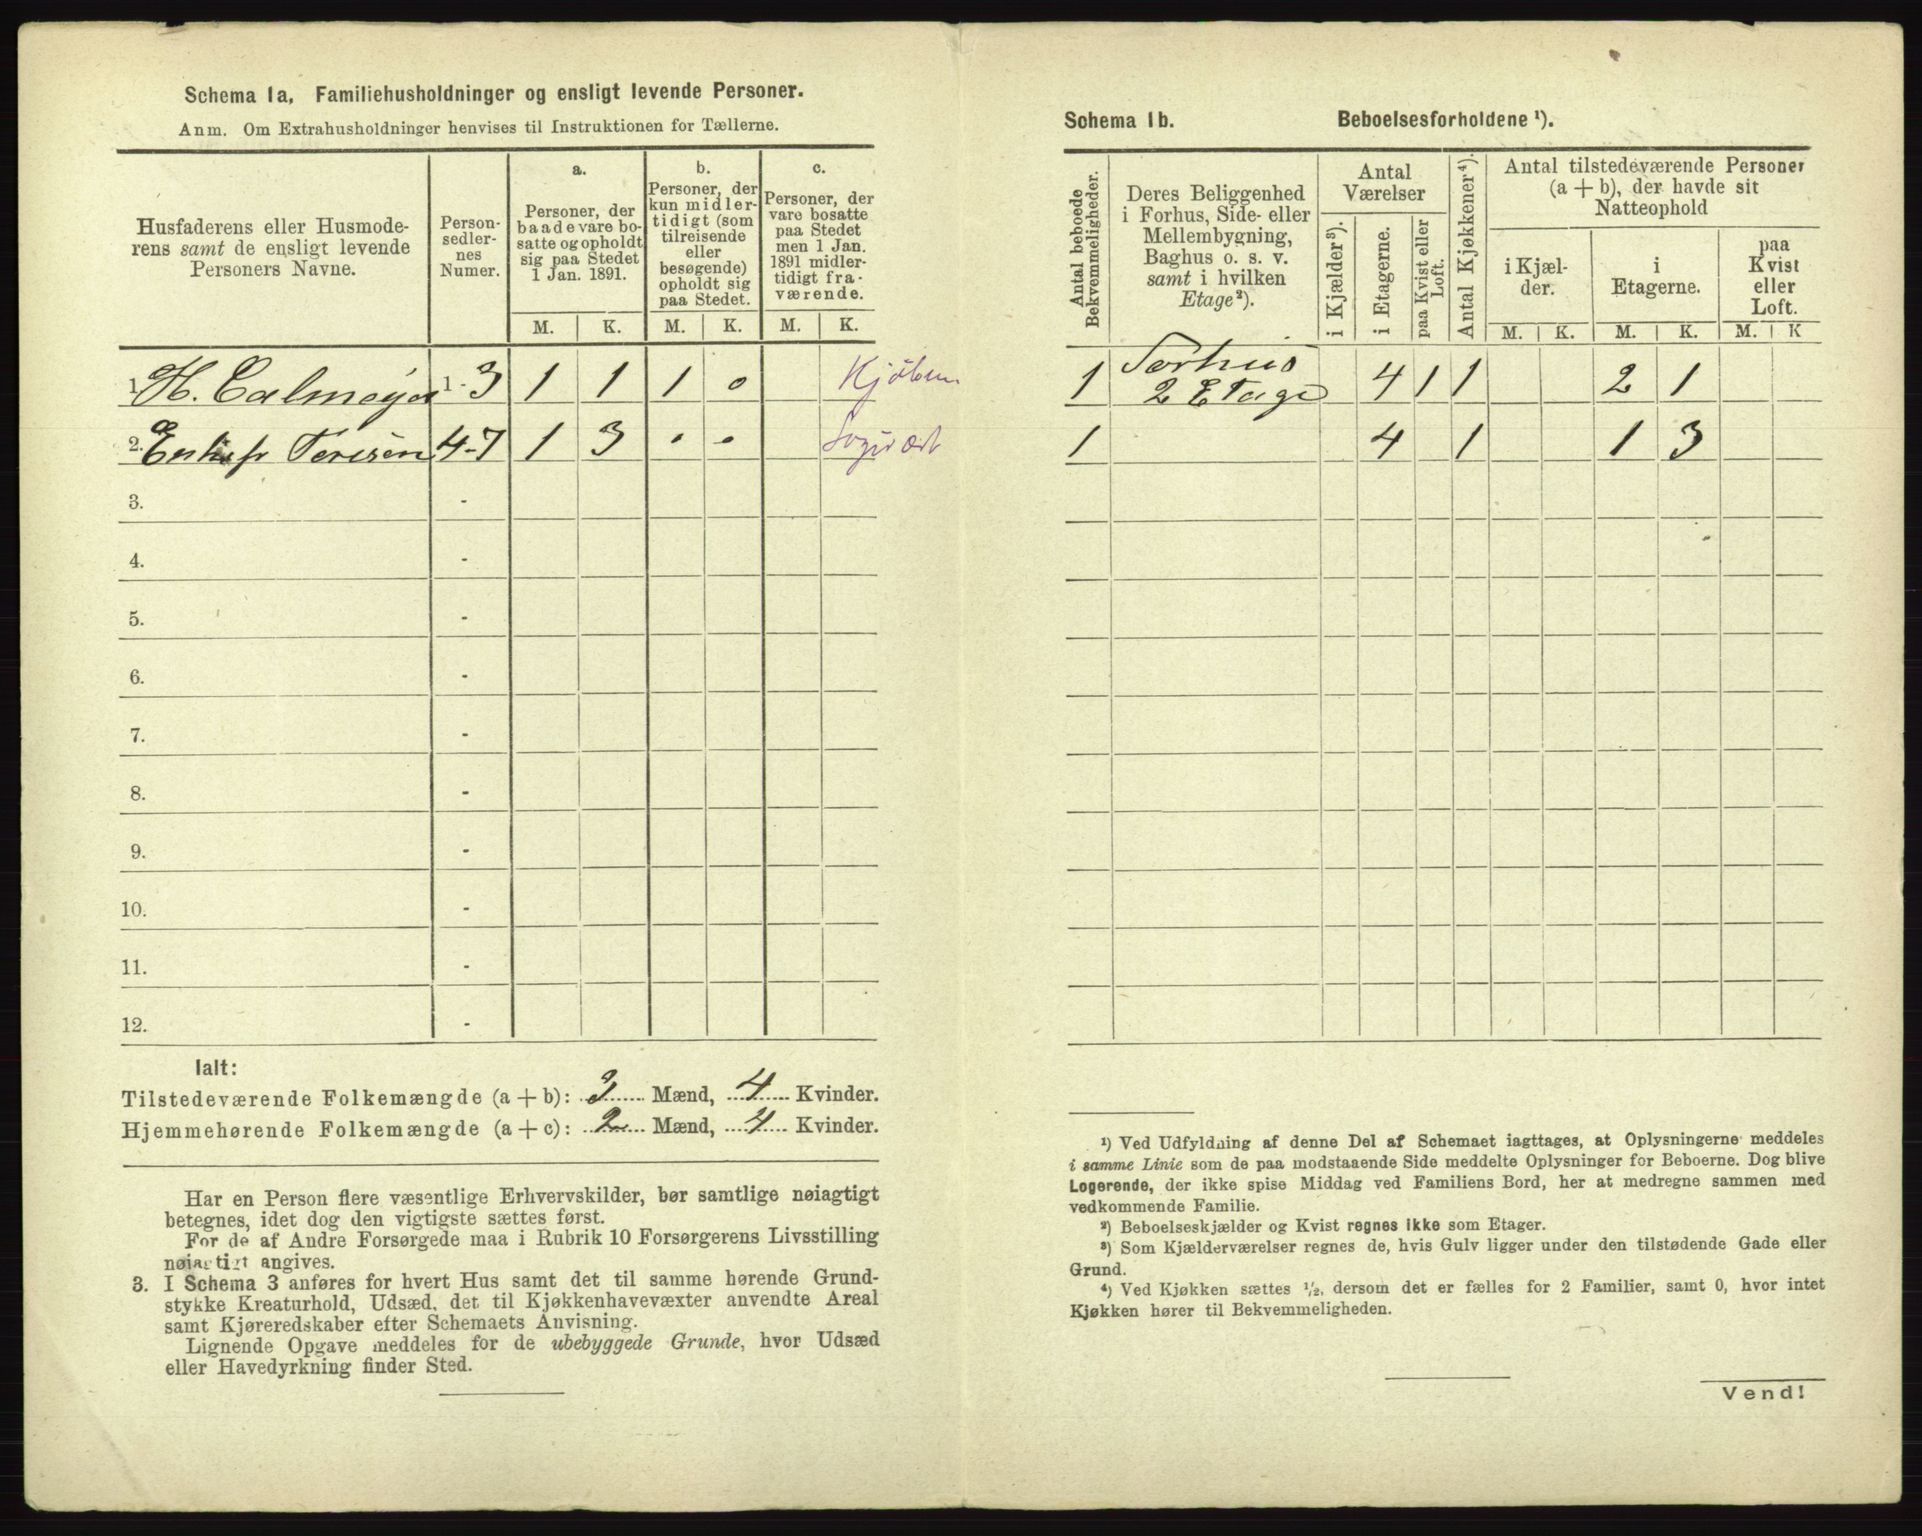 Schema 1a, Familiehusholdninger og ensligt levende Personer.
Anm. Om Extrahusholdninger henvises til Instruktionen for Tællerne.
Husfaderens eller Husmode-
rens samt de ensligt levende
Personers Navne.
Person-
sedler-
nes
Numer.
a.
Personer, der
baade vare bo-
satte og opholdt
sig paa Stedet
1 Jan. 1891.
b.
Personer, der
kun midler-
tidigt (som
tilreisende
eller
besøgende)
opholdt sig
paa Stedet.
c.
Personer, der
vare bosatte
paa Stedet
men 1 Jan.
1891 midler-
tidigt fra-
værende.
M. K. M. K. M. K.
1. H. Calmeyer 1-3 1 1 1 0
2. 4-7 1 3 . .
3. -
4. -
5. -
6. -
7. -
8. -
9. -
10. -
11. -
12. -
Ialt:
Tilstedeværende Folkemængde (a + b): 3 Mænd, 4 Kvinder.
Hjemmehørende Folkemængde (a + c): 2 Mænd, 4 Kvinder.
Har en Person flere væsentlige Erhvervskilder, bør samtlige nøiagtigt
betegnes, idet dog den vigtigste sættes først.
For de af Andre Forsørgede maa i Rubrik 10 Forsørgerens Livsstilling
nøiagtigt angives.
3. I Schema 3 anføres for hvert Hus samt det til samme hørende Grund-
stykke Kreaturhold, Udsæd, det til Kjøkkenhavevæxter anvendte Areal
samt Kjøreredskaber efter Schemaets Anvisning.
Lignende Opgave meddeles for de ubebyggede Grunde, hvor Udsæd
eller Havedyrkning finder Sted.
Schema 1b. Beboelsesforholdene ¹).
Antal beboede
Bekvemmeligheder.
Deres Beliggenhed
i Forhus, Side- eller
Mellembygning,
Baghus o. s. v.
samt i hvilken
Etage²).
Antal
Værelser
i Kjælder³).
i Etagerne.
paa Kvist eller
Loft.
Antal Kjøkkener⁴).
Antal tilstedeværende Personer
(a + b), der havde sit
Natteophold
i Kjæl-
der.
i
Etagerne.
paa
Kvist
eller
Loft.
M. K. M. K. M. K
1 Forhus
2 Etage 4 1 1 2 1
1 4 1 1 3
¹) Ved Udfyldning af denne Del af Schemaet iagttages, at Oplysningerne meddeles
i samme Linie som de paa modstaaende Side meddelte Oplysninger for Beboerne. Dog blive
Logerende, der ikke spise Middag ved Familiens Bord, her at medregne sammen med
vedkommende Familie.
²) Beboelseskjælder og Kvist regnes ikke som Etager.
³) Som Kjælderværelser regnes de, hvis Gulv ligger under den tilstødende Gade eller
Grund.
⁴) Ved Kjøkken sættes ½, dersom det er fælles for 2 Familier, samt 0, hvor intet
Kjøkken hører til Bekvemmeligheden.
Vend!